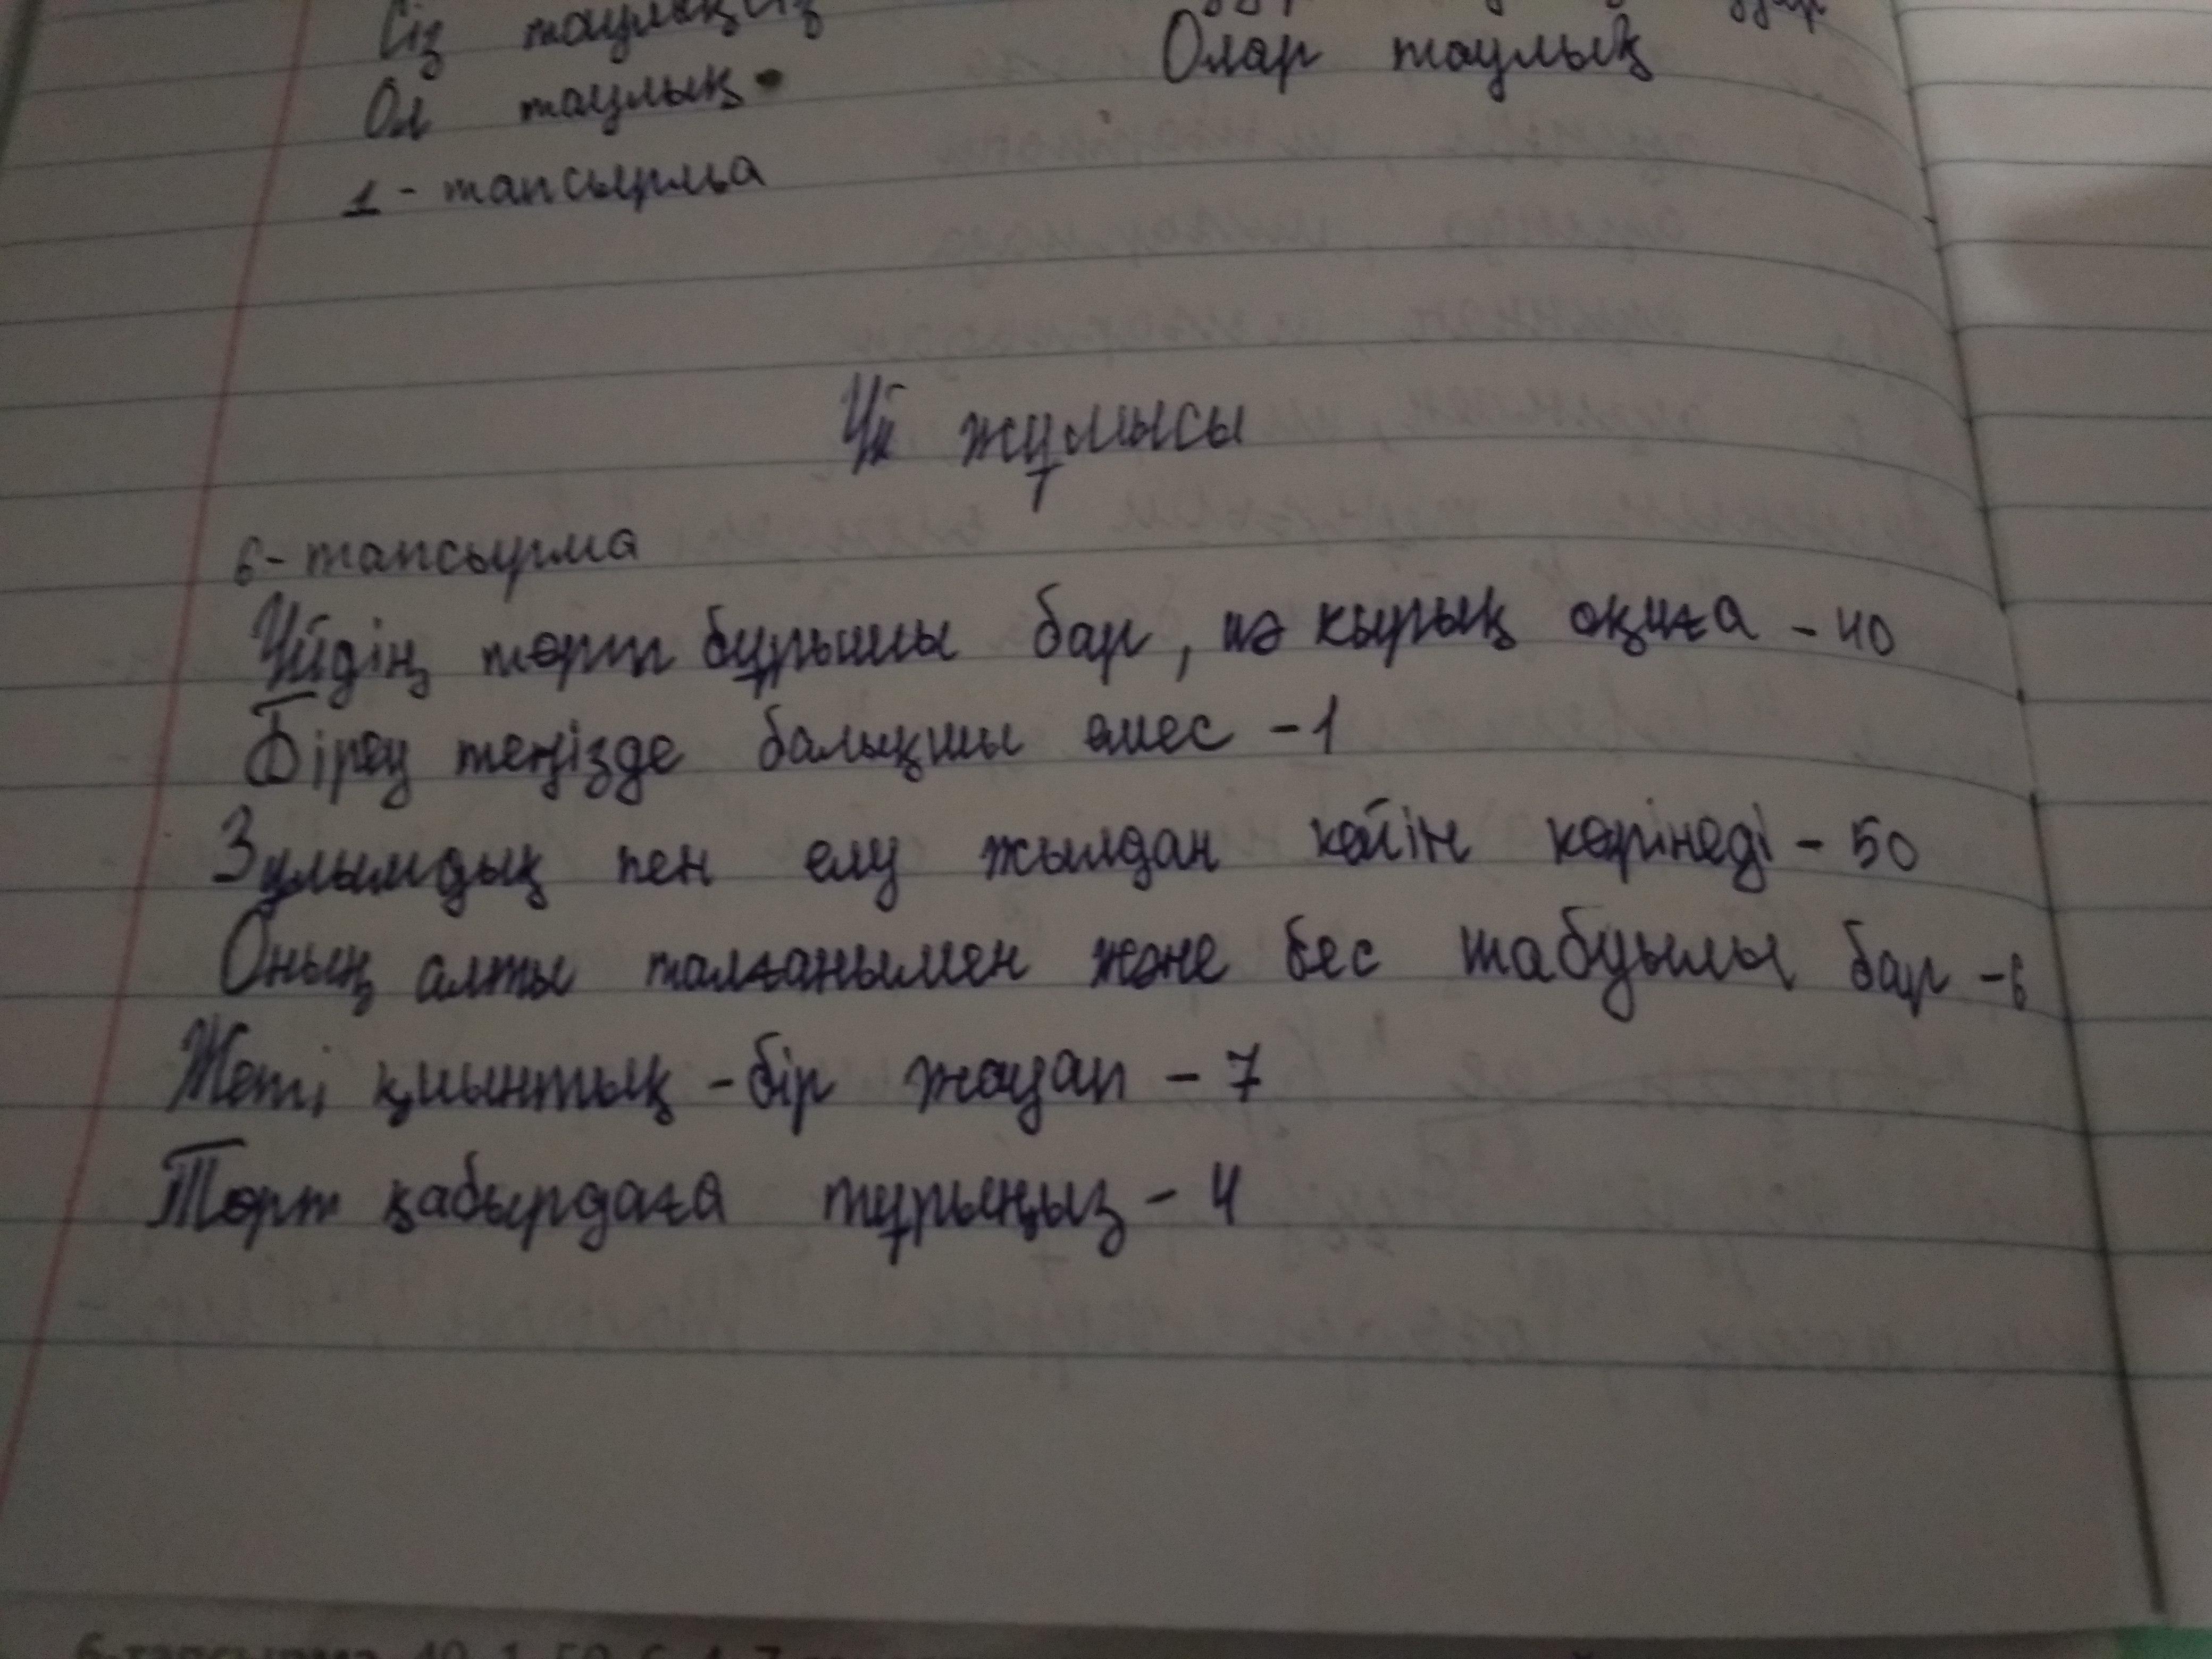 Сіз таулықсыз
Ол таулық.
Олар таулық
1 - тапсырма
Үй жұмысы
6 - тапсырма
Үйдің төрт бұрышы бар, кырық оқиға - 40
Біреу теңізде балықшы емес - 1
Зұлымдық пен елу жылдан кейін көрінеді - 50
Оның алты талғанымен және бес шабуылы бар - 6
Жеті қиынтық - бір жауап - 7
Төрт қабырдаға тұрыңыз - 4
6-тапсырма. 40, 1, 50, 6, 4, 7